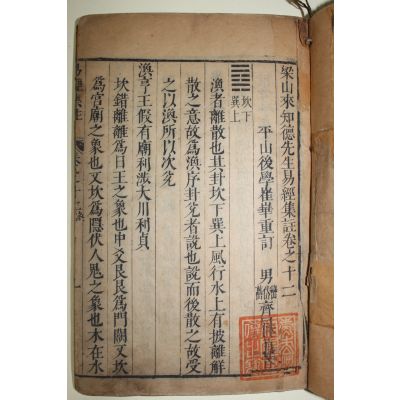 梁山來知德先生易經集註卷之十二
平山後學崔華重訂 男
齊
坎下
巽上
渙者離散也其卦坎下巽上風行水上有披離解
散之意故為渙序卦兌者說也說而後散之故受
之以渙所以次兌
渙亨王假有廟利涉大川利貞
坎錯離離為日王之象也中爻艮艮為門闕又坎
為宮廟之象也又坎為隱伏人鬼之象也木在水
卷之十二
一